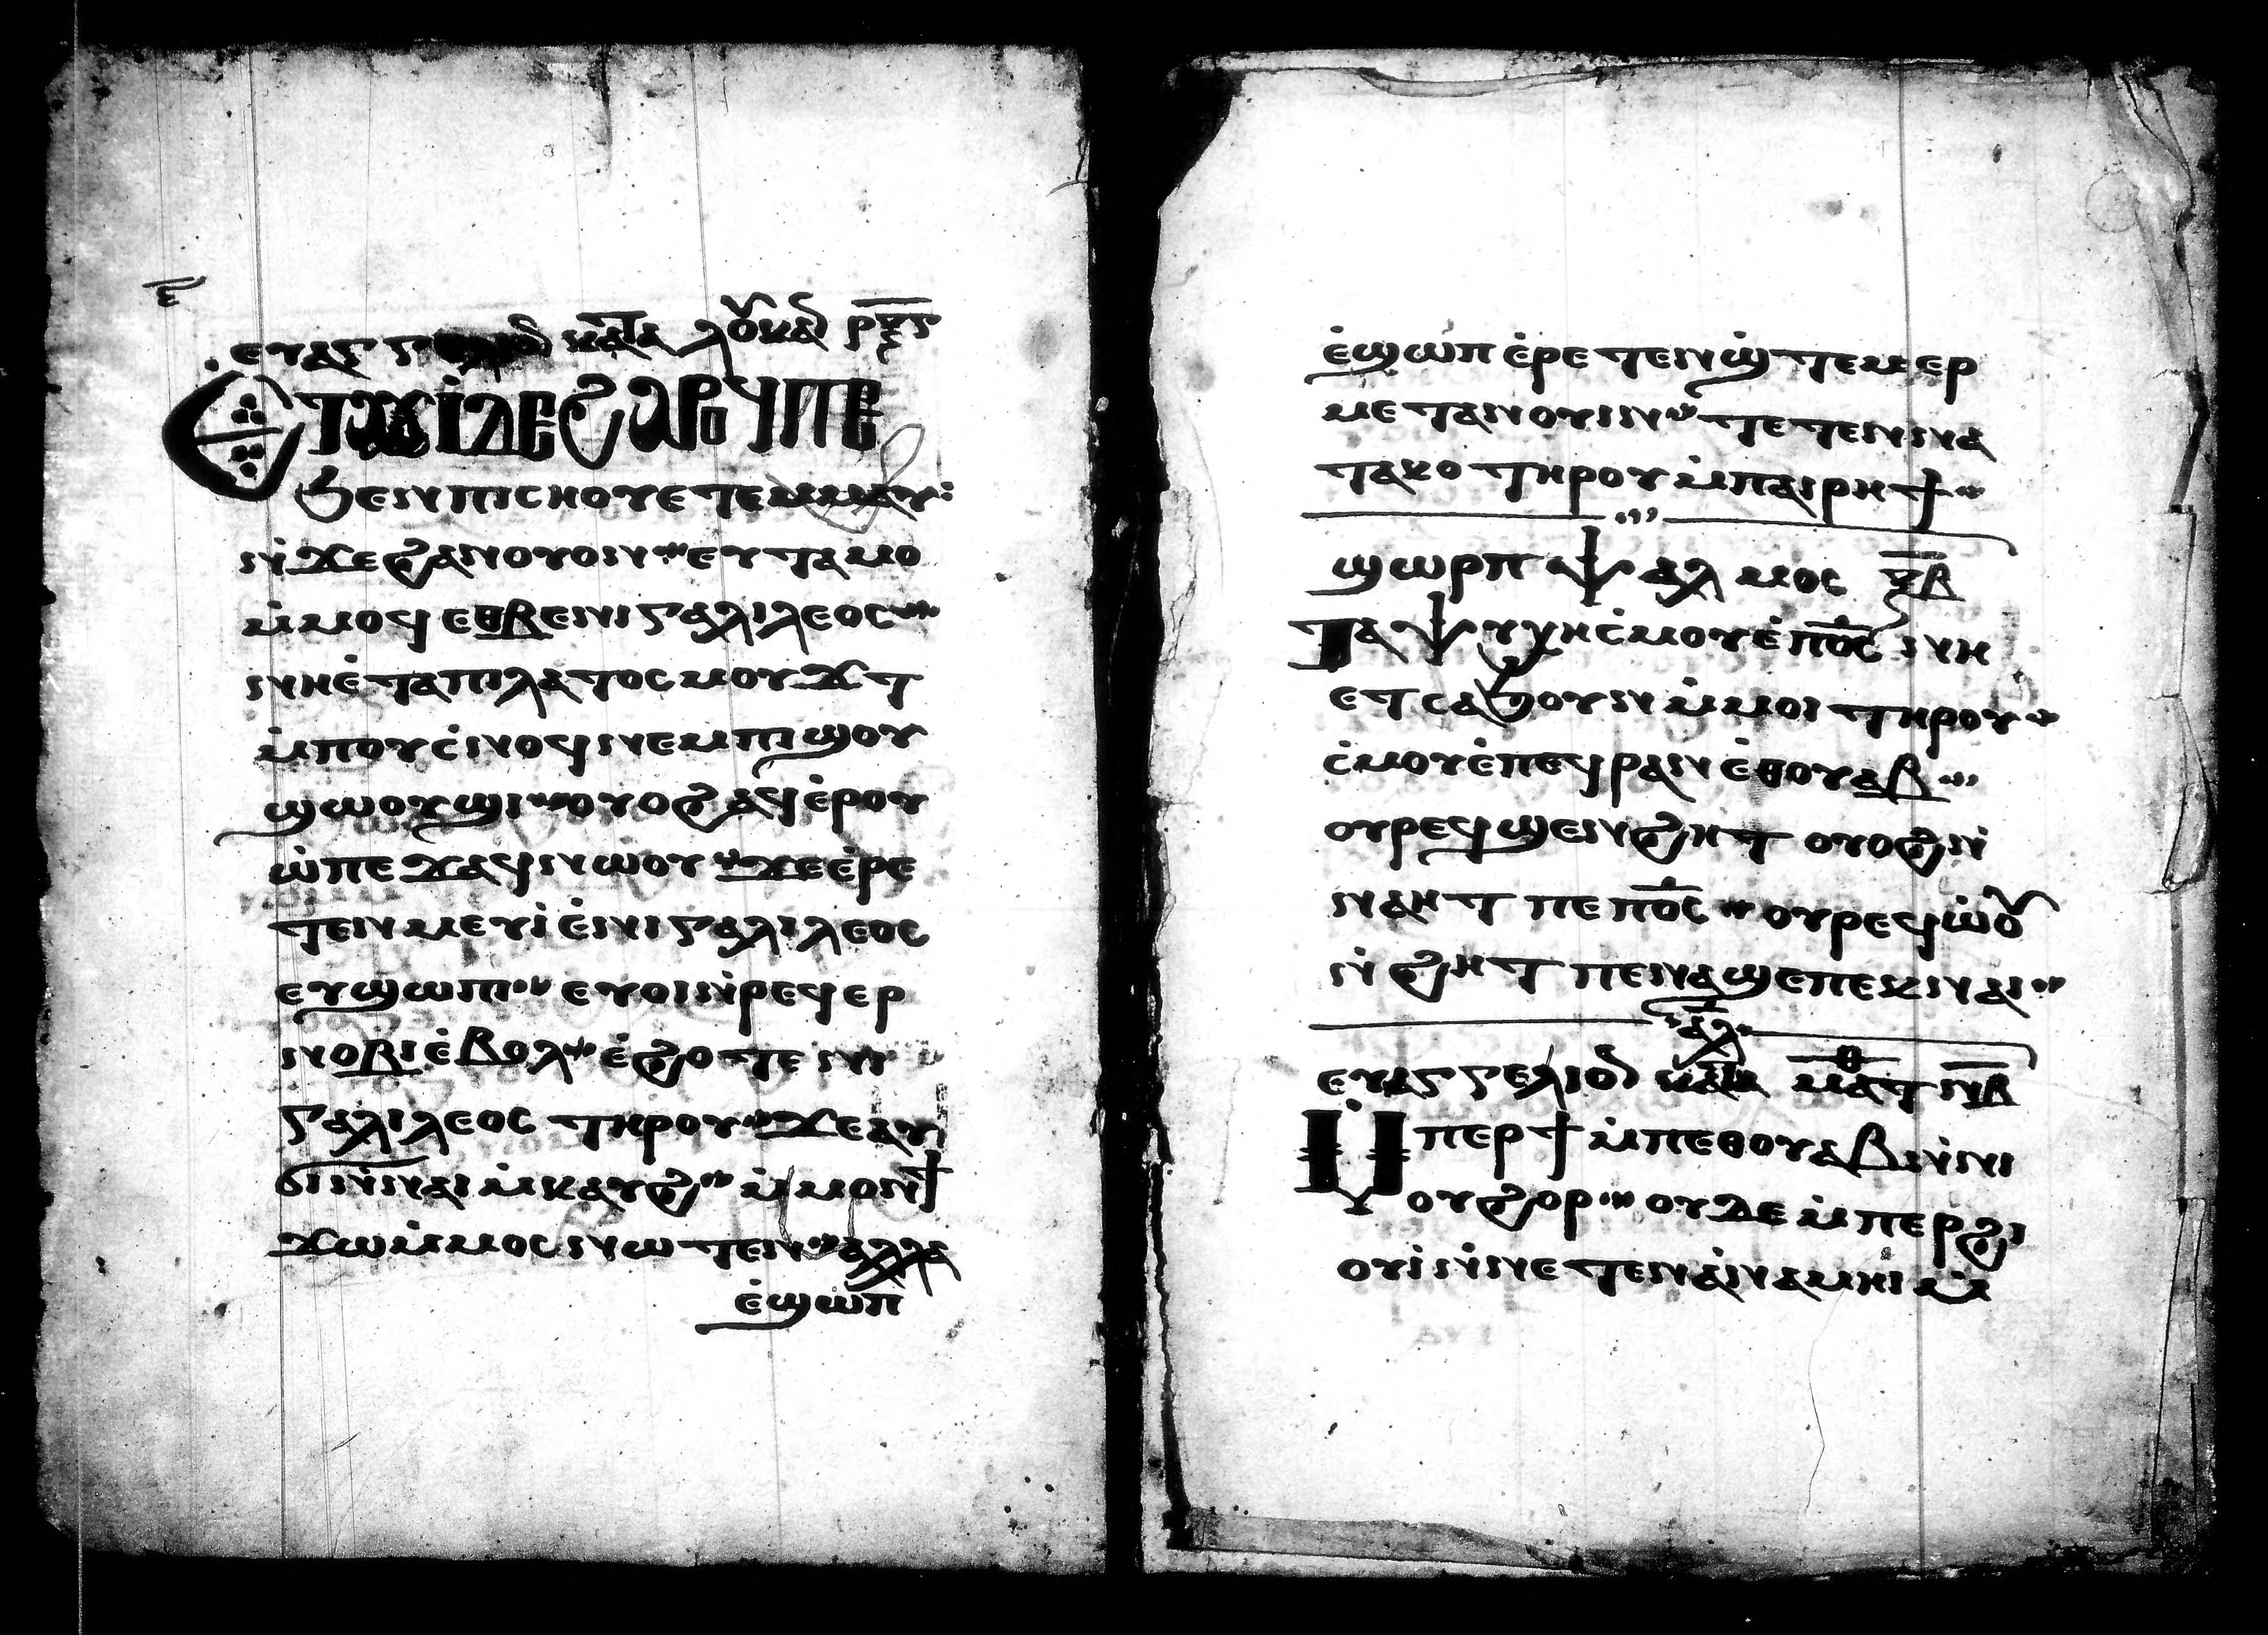 ⲉ̅
ⲉⲩⲁⲅⲅ ⲕⲁⲧⲁ ⲗⲟⲩⲕⲁⲛ ⲣ̅ⲝ̅ⲋ̅
Ⲉⲧⲁⲩⲓ̀ ⲇⲉ ϩⲁⲣⲟϥ ⲡⲉ
ϧⲉⲛ ⲡⲓⲥⲏⲟⲩ ⲉⲧⲉⲙⲙⲁⲩ:
ⲛ̀ϫⲉ ϩⲁⲛⲟⲩⲟⲛ ⲉⲩⲧⲁⲙⲟ
ⲙ̀ⲙⲟϥ ⲉⲑⲃⲉ ⲛⲓⲅⲁⲗⲓⲗⲉⲟⲥ
ⲛⲏⲉ̀ⲧⲁ ⲡⲓⲗⲁⲧⲟⲥ ⲙⲟⲩϫⲧ
ⲙ̀ⲡⲟⲩⲥ̀ⲛⲟϥ ⲛⲉⲙ ⲡⲓϣⲟⲩ
ϣⲱⲟⲩϣⲓ ⲟⲩⲟϩ ⲁϥⲉ̀ⲣⲟⲩ
ⲱ̀ ⲡⲉϫⲁϥ ⲛⲱⲟⲩ ϫⲉ ⲉ̀ⲣⲉ
ⲧⲉⲛⲙⲉⲩⲓ̀ ⲉ̀ⲛⲓⲅⲁⲗⲓⲗⲉⲟⲥ
ⲉⲩϣⲱⲡ ⲉⲩⲟⲓ ⲛ̀ⲣⲉϥⲉⲣ
ⲛⲟⲃⲓ ⲉ̀ⲃⲟⲗ ⲉ̀ϩⲟⲧⲉ ⲛⲓ
ⲅⲁⲗⲓⲗⲉⲟⲥ ⲧⲏⲣⲟⲩ ϫⲉ ⲁⲩ
ϭⲓ ⲛ̀ⲛⲁⲓ ⲙ̀ⲕⲁⲩϩ ⲙ̀ⲙⲟⲛ ϯ
ϫⲱ ⲙ̀ⲙⲟⲥ ⲛⲱⲧⲉⲛ ⲁⲗⲗⲁ
ⲉ̀ϣⲱⲡ
ⲉ̀ϣⲱⲡ ⲉ̀ⲣⲉⲧⲉⲛϣ̀ⲧⲉⲙⲉⲣ
ⲙⲉⲧⲁⲛⲟⲩⲓⲛ ⲧⲉⲧⲉⲛⲛⲁ
ⲧⲁⲕⲟ ⲧⲏⲣⲟⲩ ⲙ̀ⲡⲁⲓⲣⲏϯ
ϣⲱⲣⲡ ⲯⲁⲗⲙⲟⲥ ⲣ̅ⲃ̅
Ⲧⲁⲯⲩⲭⲏ ⲥ̀ⲙⲟⲩ ⲉ̀ⲡⲟ̅ⲥ̅ ⲛⲏ
ⲉⲧⲥⲁϧⲟⲩⲛ ⲙ̀ⲙⲟⲓ ⲧⲏⲣⲟⲩ
ⲥ̀ⲙⲟⲩ ⲉ̀ⲡⲉϥⲣⲁⲛ ⲉ̀ⲑⲟⲩⲁⲃ
ⲟⲩⲣⲉϥϣⲉⲛϩⲏⲧ ⲟⲩⲟϩ ⲛ̀
ⲛⲁⲏⲧ ⲡⲉ ⲡⲟ̅ⲥ̅ ⲟⲩⲣⲉϥⲱ̀ⲟⲩ
ⲛ̀ϩⲏⲧ ⲡⲉ ⲛⲁϣⲉ ⲡⲉⲕⲛⲁⲓ
ⲁⲗ
ⲉⲩⲁⲅⲅⲉⲗⲓⲟⲛ ⲕⲁⲧⲁ ⲙⲁⲧⲑ ⲛ̅ⲃ̅
Ⲙ̀ⲡⲉⲣϯ ⲙ̀ⲡⲉⲑⲟⲩⲁⲃ ⲛ̀ⲛⲓ
ⲟⲩϩⲟⲣ ⲟⲩⲇⲉ ⲙ̀ⲡⲉⲣϩⲓ
ⲟⲩⲓ̀ ⲛ̀ⲛⲉⲧⲉⲛⲁ̀ⲛⲁⲙⲏⲓ ⲙ̀